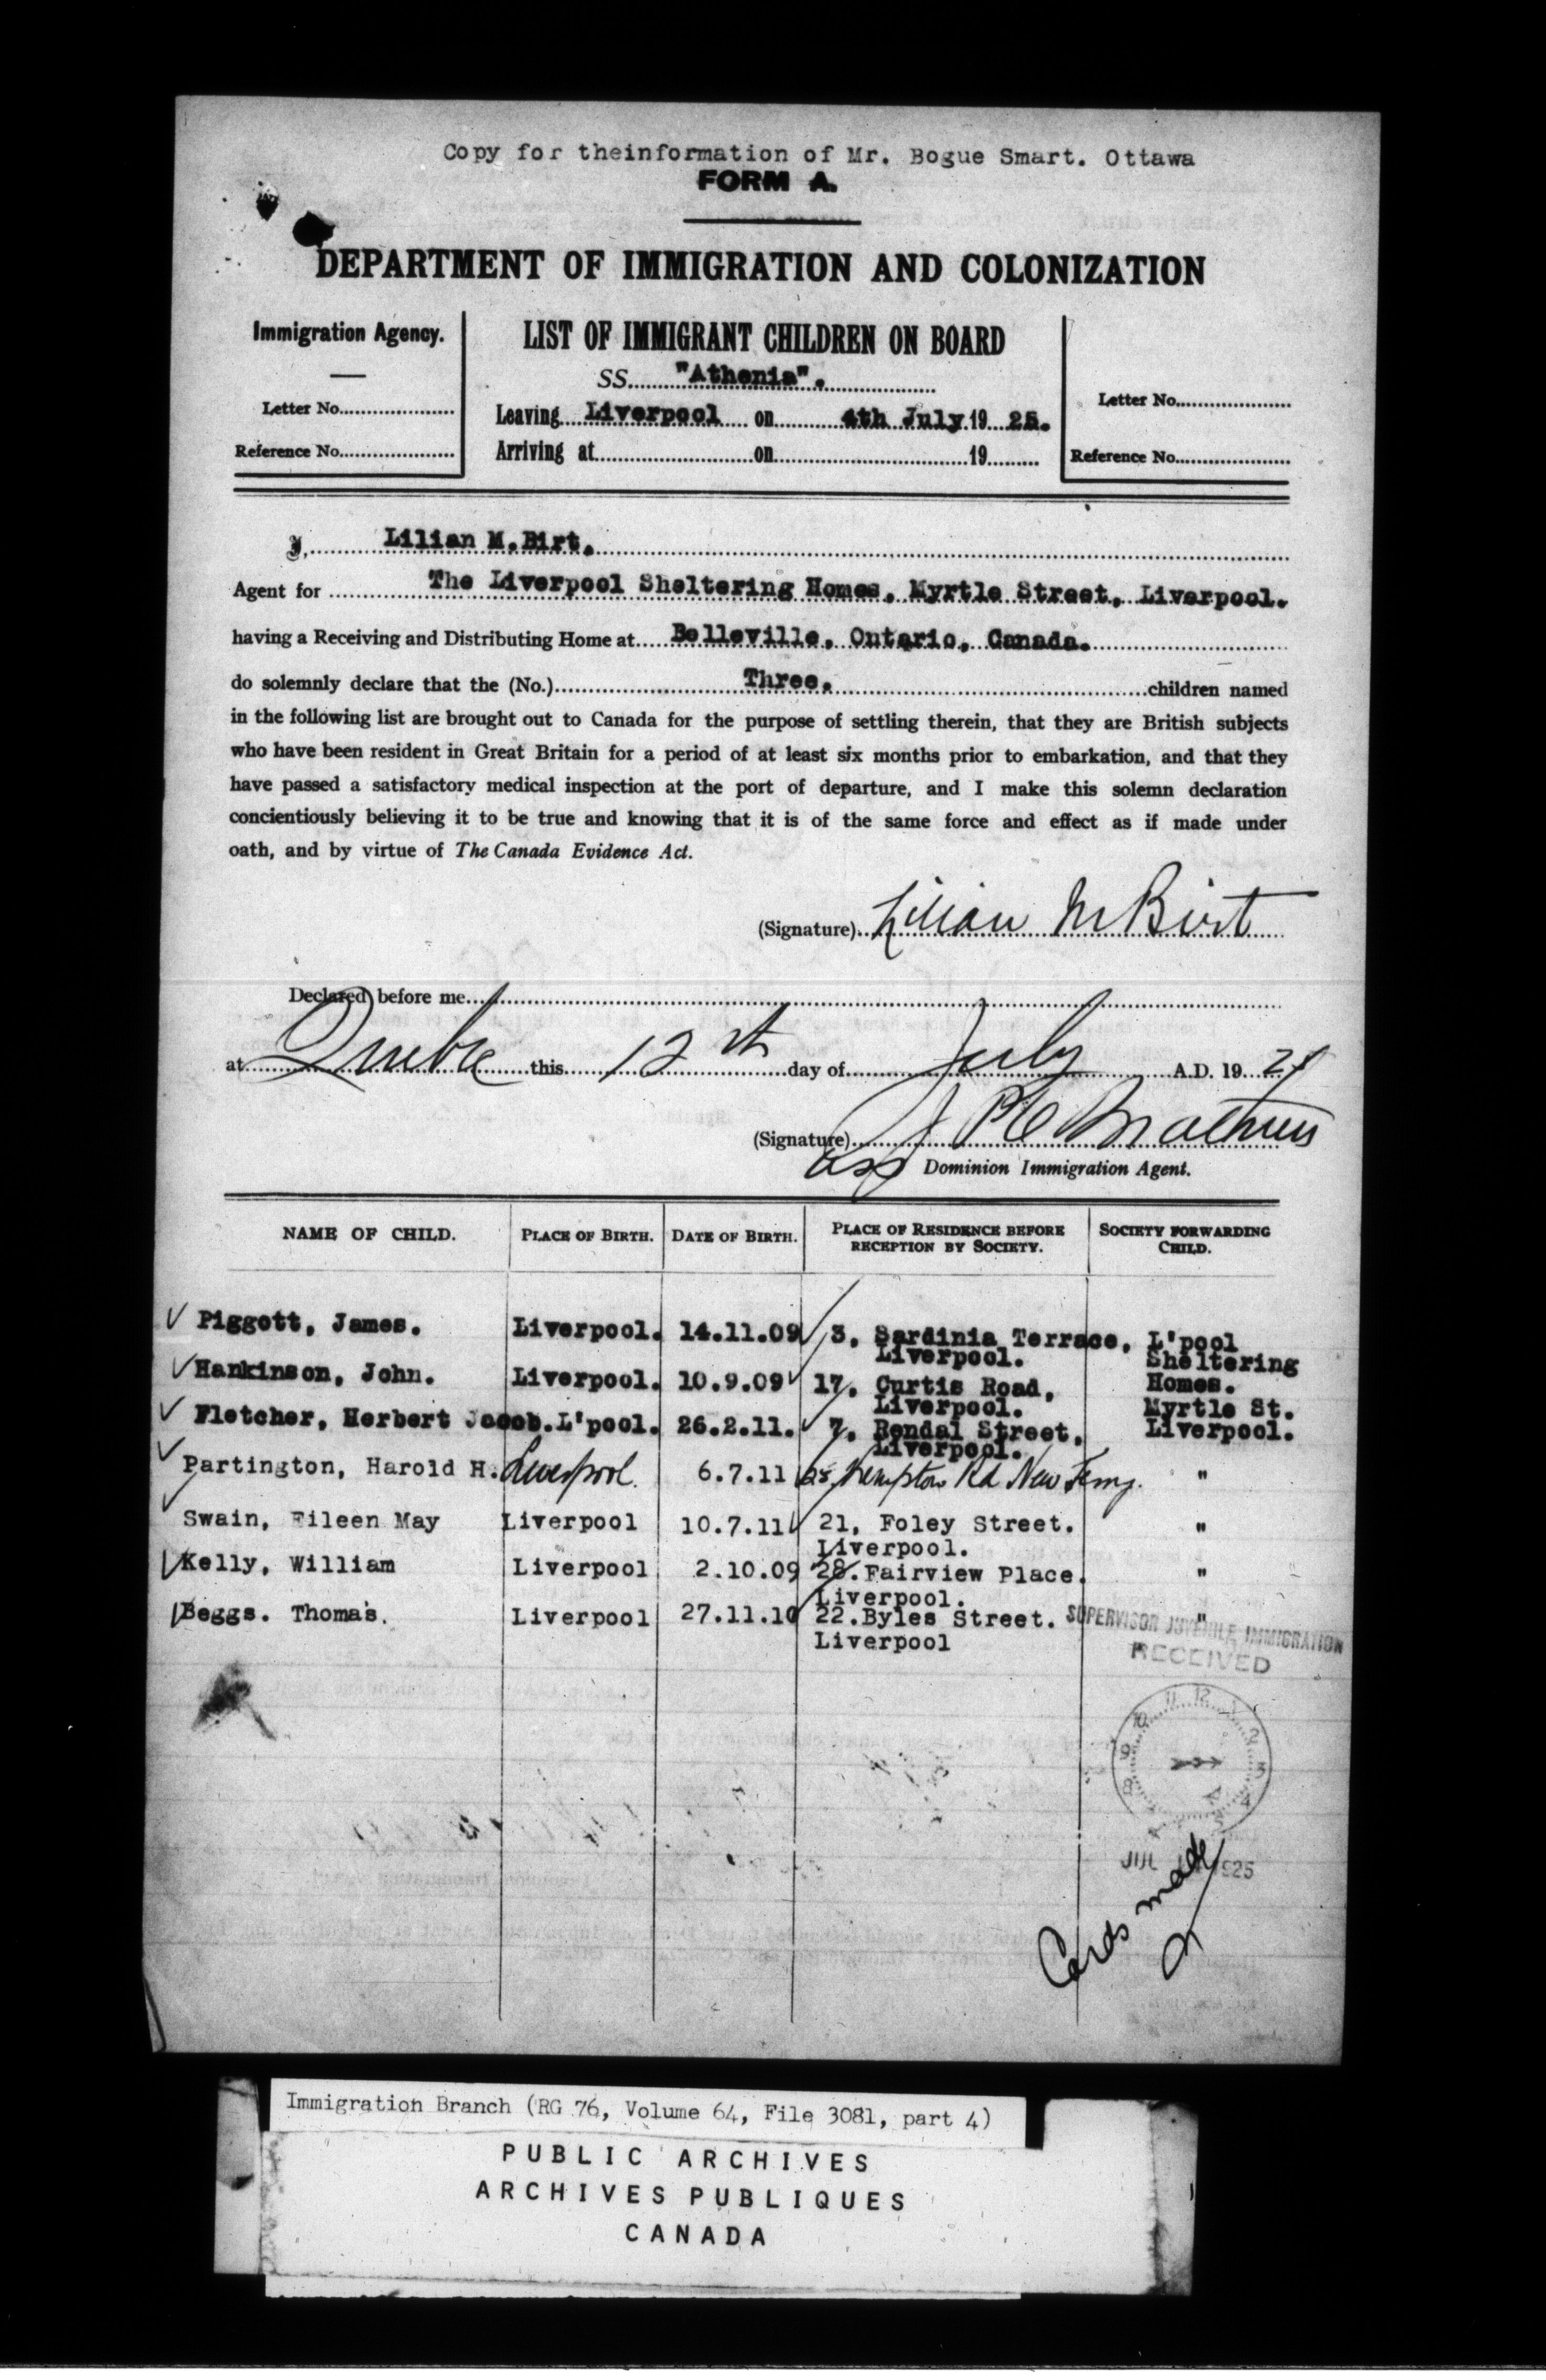 Copy for theinformation of Mr. Bogue Smart. Ottawa
FORM A.
DEPARTMENT OF IMMIGRATION AND COLONIZATION
Immigration Agency.
Letter No.
Reference No.
LIST OF IMMIGRANT CHILDREN ON BOARD
SS. "Athenia".
Leaving Liverpool on 4th July 19 25.
Arriving at on 19
Letter No.
Reference No.
I, Lilian M.Birt.
Agent for The Liverpool Sheltering Homes, Myrtle Street, Liverpool.
having a Receiving and Distributing Home at Belleville, Ontario, Canada.
do solemnly declare that the (No.) Three. children named
in the following list are brought out to Canada for the purpose of settling therein, that they are British subjects
who have been resident in Great Britain for a period of at least six months prior to embarkation, and that they
have passed a satisfactory medical inspection at the port of departure, and I make this solemn declaration
concientiously believing it to be true and knowing that it is of the same force and effect as if made under
oath, and by virtue of The Canada Evidence Act.
(Signature) Lilian M Birt
Declared before me
at Quebec this 12 day of July A.D. 19
(Signature)
Dominion Immigration Agent.
NAME OF CHILD. PLACE OF BIRTH. DATE OF BIRTH. PLACE OF RESIDENCE BEFORE RECEPTION BY SOCIETY. SOCIETY FORWARDING CHILD.
Piggott, James. Liverpool. 14.11.09 3, Sardinia Terrace, L'pool
Liverpool. Sheltering
Hankinson, John. Liverpool. 10.9.09 17, Curtis Road, Homes.
Liverpool. Myrtle St.
Fletcher, Herbert Jacob. L'pool. 26.2.11. 7, Rendal Street, Liverpool.
Liverpool.
Partington, Harold H. Liverpool. 6.7.11 Kempton Rd New Ferry. "
Swain, Eileen May Liverpool 10.7.11 21, Foley Street. "
Liverpool.
Kelly, William Liverpool 2.10.09 28.Fairview Place. "
Liverpool.
Beggs. Thomas. Liverpool 27.11.10 22.Byles Street. "
Liverpool
SUPERVISOR JUVENILE IMMIGRATION
RECEIVED
10 11 12 1 2 3 4 5 8 9
JUL 1925
Cards made
Immigration Branch (RG 76, Volume 64, File 3081, part 4)
PUBLIC ARCHIVES
ARCHIVES PUBLIQUES
CANADA